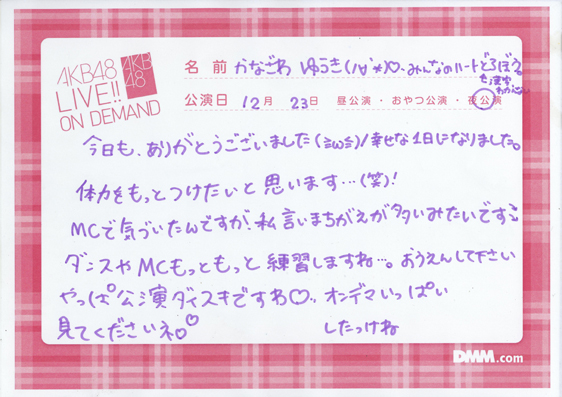 AKB48
LIVE!!
ON DEMAND
AKB
48
名 前 かなざわ ゆうき(ﾉ∀`*)♡、みんなのハートどろぼう。
公演日 12月 23日 昼公演・おやつ公演・夜公演
今日も、ありがとうございました(≧ω≦)ﾉ 幸せな1日になりました。
体力をもっとつけたいと思います…(笑)!
MCで気づいたんですが、私言いまちがえが多いみたいです
ダンスやMCもっともっと練習しますね…。おうえんして下さい
やっぱ公演ダイスキですわ♡、オンデマいっぱい
見てくださいネ。♡
したっけね
DMM.com